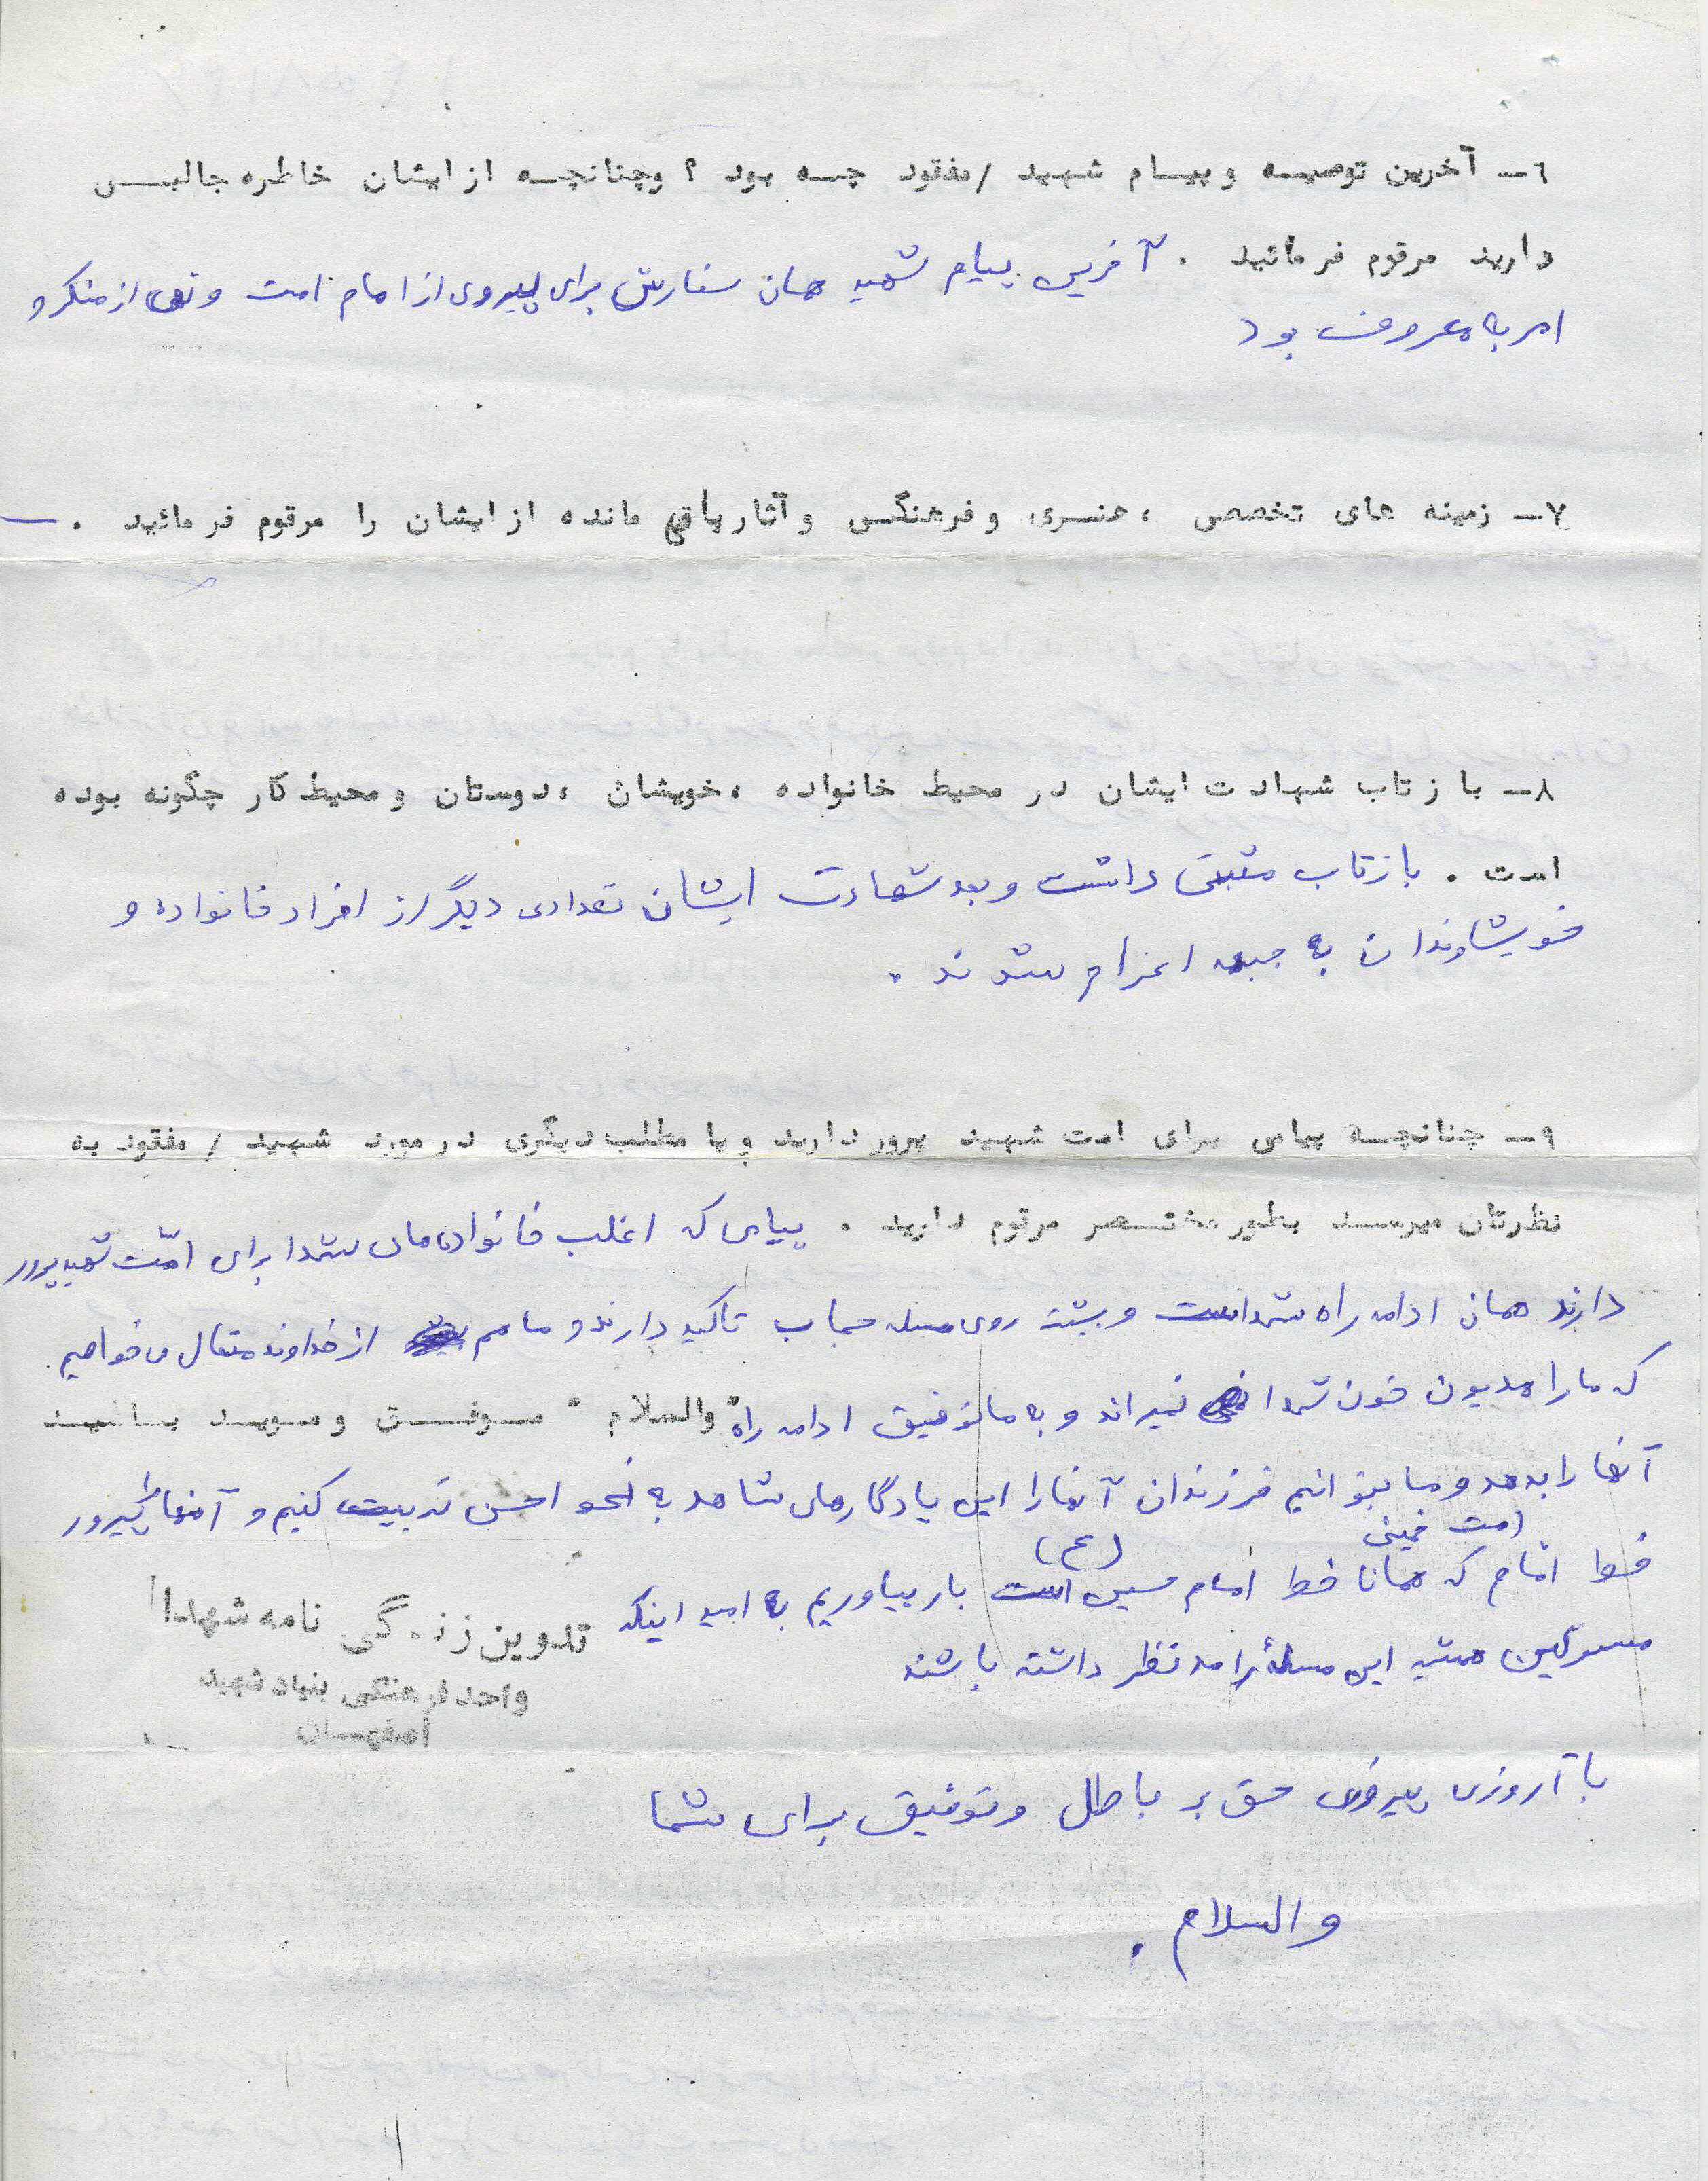 ۶ــ آخرین توصیه و پیام شهید /مفقود چه بود ؟ وچنانچه از ایشان خاطره جالبی
دارید مرقوم فرمائید . آخرین پیام شهید همان سفارش برای پیروی از امام امت و نهی از منکر و
امر به معروف بود
۷ــ زمینه های تخصصی ، هنری و فرهنگی و آثار باقی مانده از ایشان را مرقوم فرمائید .
۸ــ بازتاب شهادت ایشان در محیط خانواده ، خویشان ، دوستان و محیط کار چگونه بوده
است . بازتاب مثبتی داشت و بعد شهادت ایشان تعدادی دیگر از افراد خانواده و
خویشاوندان به جبهه اعزام شدند .
۹ــ چنانچه پیامی برای امت شهید پرور دارید و یا مطلب دیگری در مورد شهید / مفقود به
نظرتان میرسد بطور مختصر مرقوم دارید . پیامی که اغلب خانواده‌های شهدا برای امّت شهید پرور
دارند همان ادامه راه شهداست و بیشتر روی مسئله حجاب تاکید دارند و ما هم از خداوند متعال می خواهیم
که ما را مدیون خون شهدا نمیراند و به ما توفیق ادامه راه " والسلام " موفق و موید باشید
آنها را بدهد و ما بتوانیم فرزندان آنها را این یادگارهای شاهد به نحو احسن تربیت کنیم و آنها را پیرور
امت خمینی
خط امام که همانا خط امام حسین (ع) است بار بیاوریم به امید اینکه
تدوین زندگی نامه شهدا
مسئولین همیشه این مسئله را مد نظر داشته باشند
واحد فرهنگی بنیاد شهید
اصفهان
با آرزوی پیروزی حق بر باطل و توفیق برای شما
والسلام .